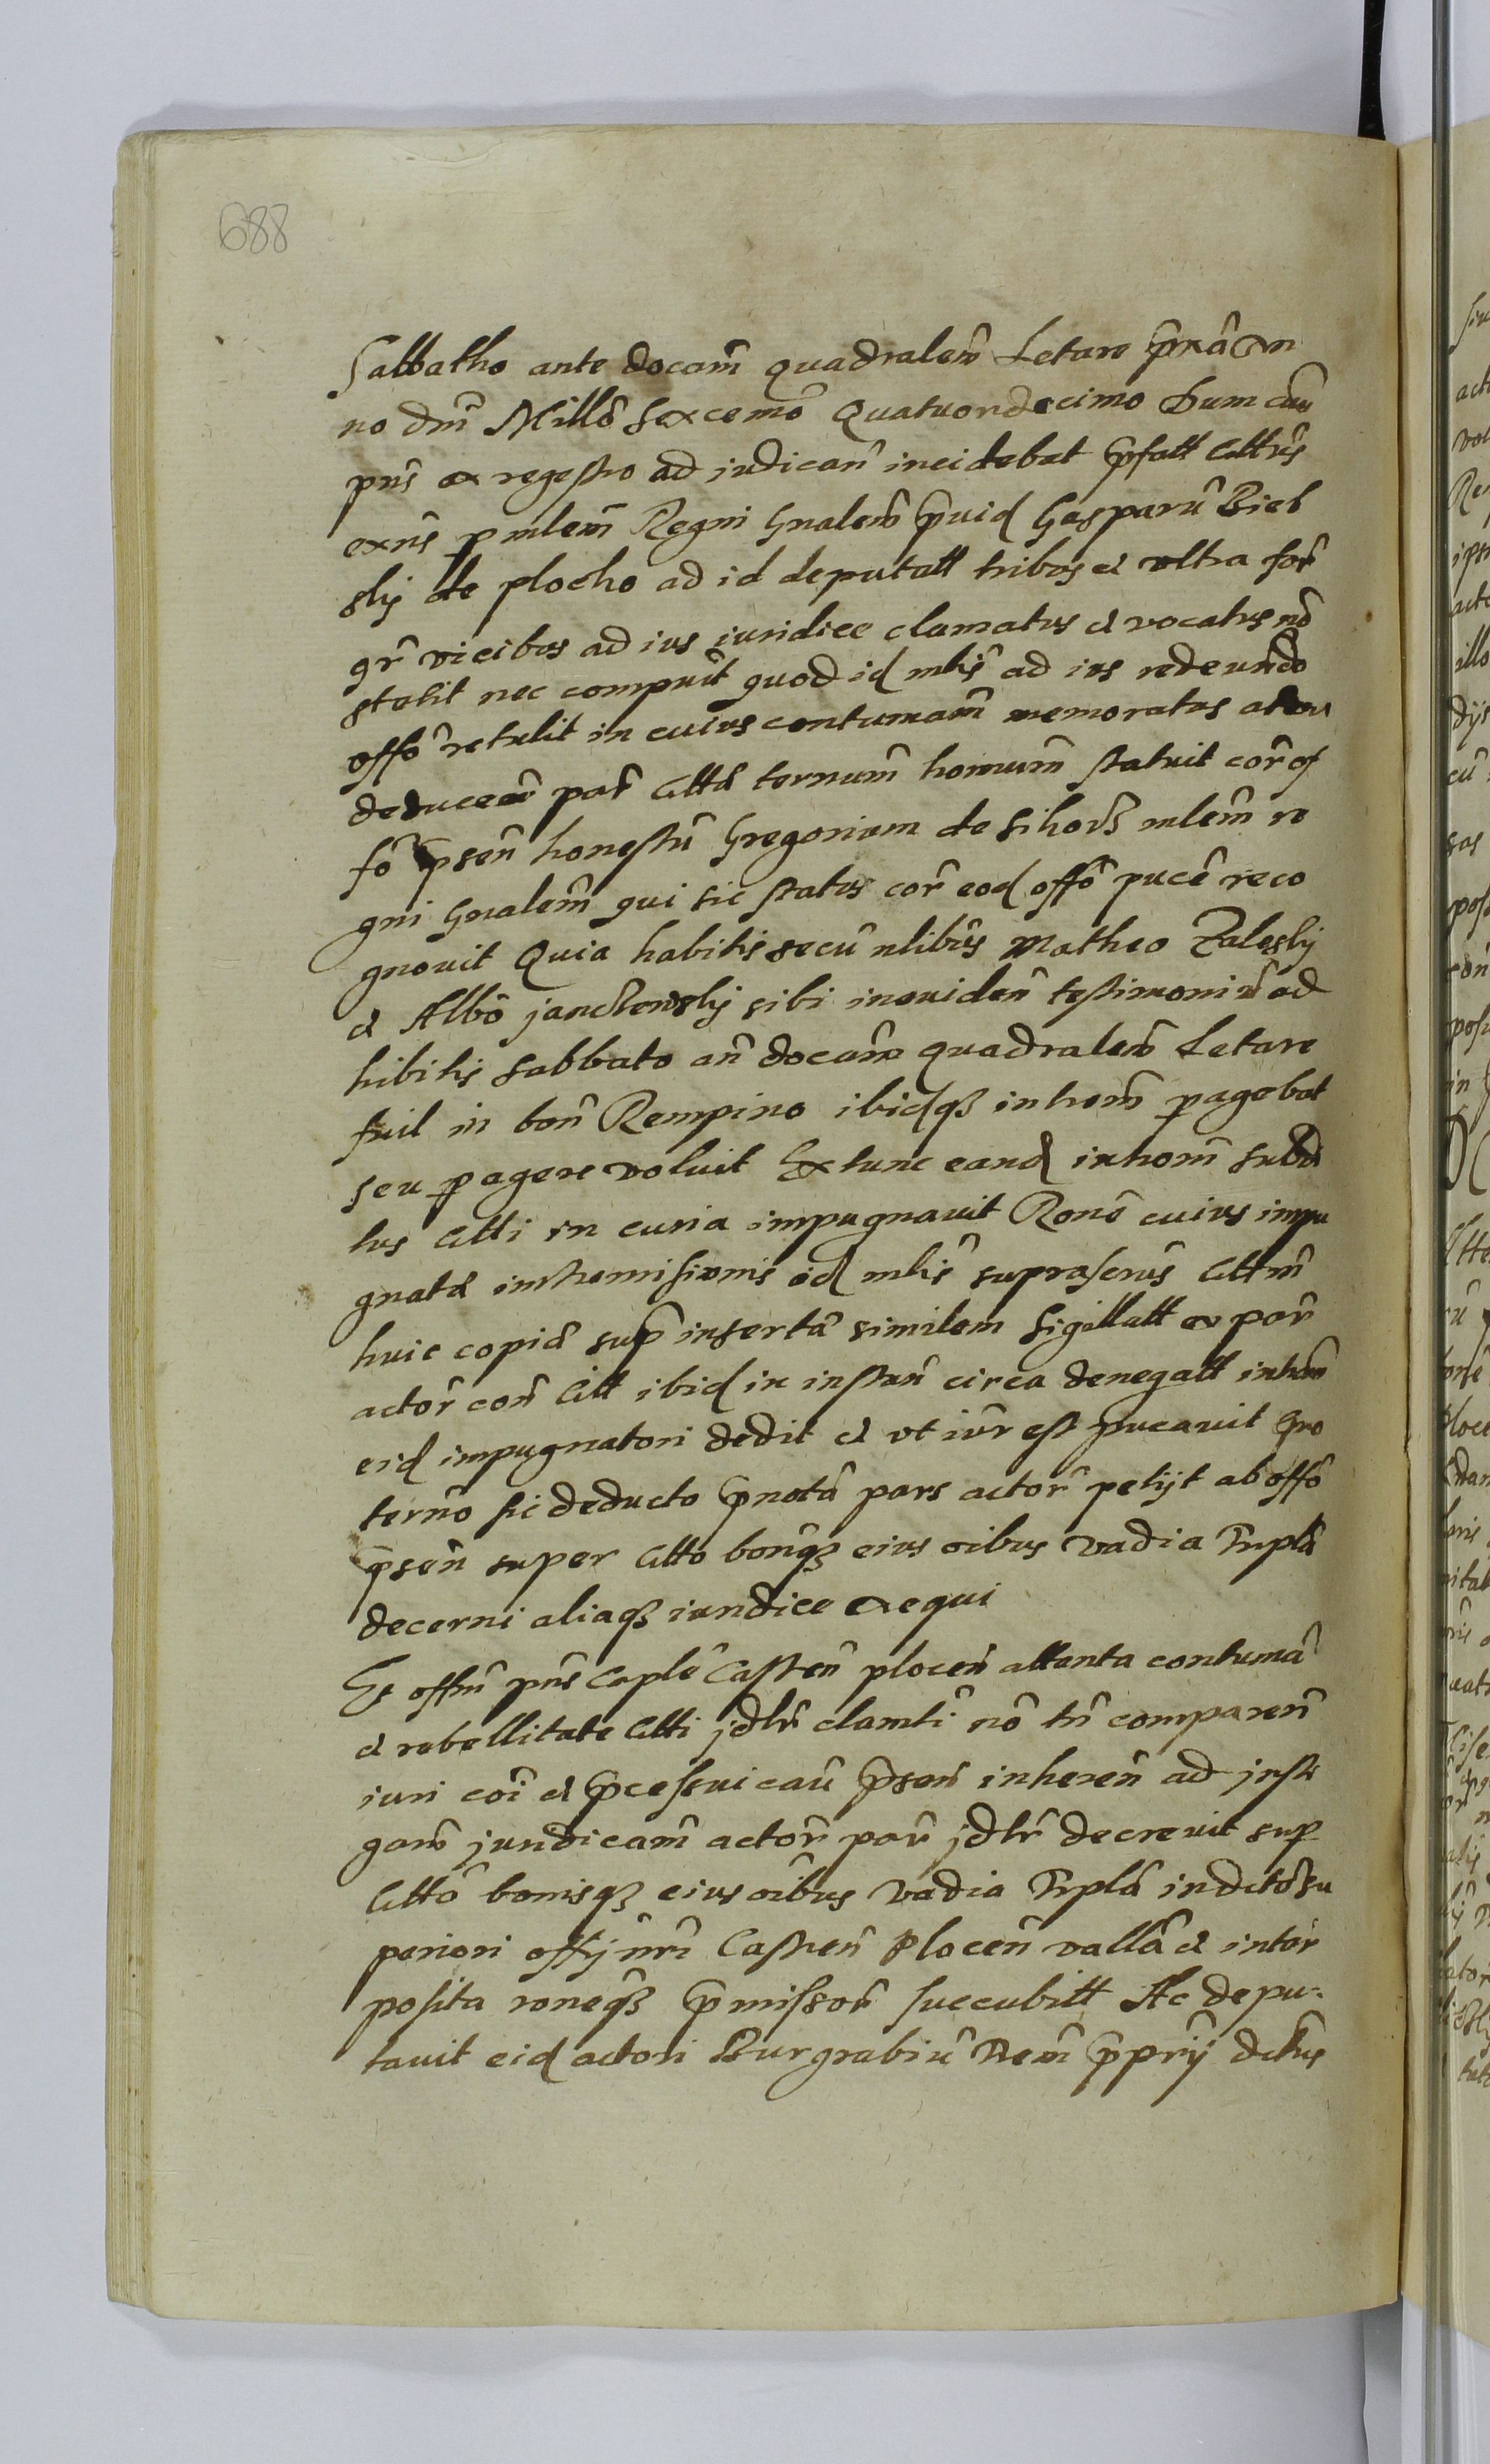 688
Sabbatho ante docam̃ quadralem̃ Letare
no dm̃ Millõ Sexcemõ Quatuordecimo Dum
pns̃ ex regestro ad judican̄ incidebat p̃fatt Citt̃s
exñs p mlem̃ Regni Gnalem̃ p̃uid Gasparũ Biel
sky de plocko ad id deputatt tribus et vltra for
gr̃ vicibus ad ius iuridice clamatus et vocatus nõ
stetit nec compuit̃ quod id mlis̃ ad ius redeundo
offõ retulit in cuius contumam̃ memoratus
par̃ Citta ternum̃ statuit cor̃ of
fõ p̃sen̄ honestũ Gregorium de mlem̃ re
gni Gnalem̃ qui sic status cor̃ eod offõ pucẽ reco
gnouit Quia habitis secũ nlibũs Matheo Zalesky
et Albõ sibi in euiden̄ testimoniũ ad
hibitis sabbato an̄ docam̃ quadralem̃ Letare
fuit in bon̄ Rempino ibidqz introm̃ pagebat
seu pagere voluit Extunc eand introm̃
tus Citti in curia impugnauit Ronẽ cuius impu
gnatã intromissionis id mlis̃ suprascrũs Cittm̃
huic copiã sup̃ insertã similem sigillatt ex par̃
actor̃ con̄ Citt ibid in instan̄ circa denegatt introm̃
eid impugnatori dedit et vt iur̃ est pucauit Quo
ternõ sic deducto p̃notã pars actor̃ petijt ab offõ
p̃sen̄ super Citto bonqz eius oibus vadia Triplã
decerni aliaqz iuridice exequi
Et offm̃ pns̃ Caple Castren̄ plocen̄ attenta contumã
et rebellitate Citti jdlr̃ clamti nõ tn̄ comparen̄
iuri coĩ et p̃cessui cau p̃sen̄ inheren̄ ad insti
gam̃ juridicam̃ actor̃ par̃ jdlr̃ decreuit sup
Cittõ bonisqz eius oĩbus vadia Triplã indictõ su
periori offij nrĩ Castren̄ Plocen̄ vallã et inter
posita roneqz p̃missor̃ succubitt Ac depu-
tauit eid actori Burgrabiũ p̃prij dctus